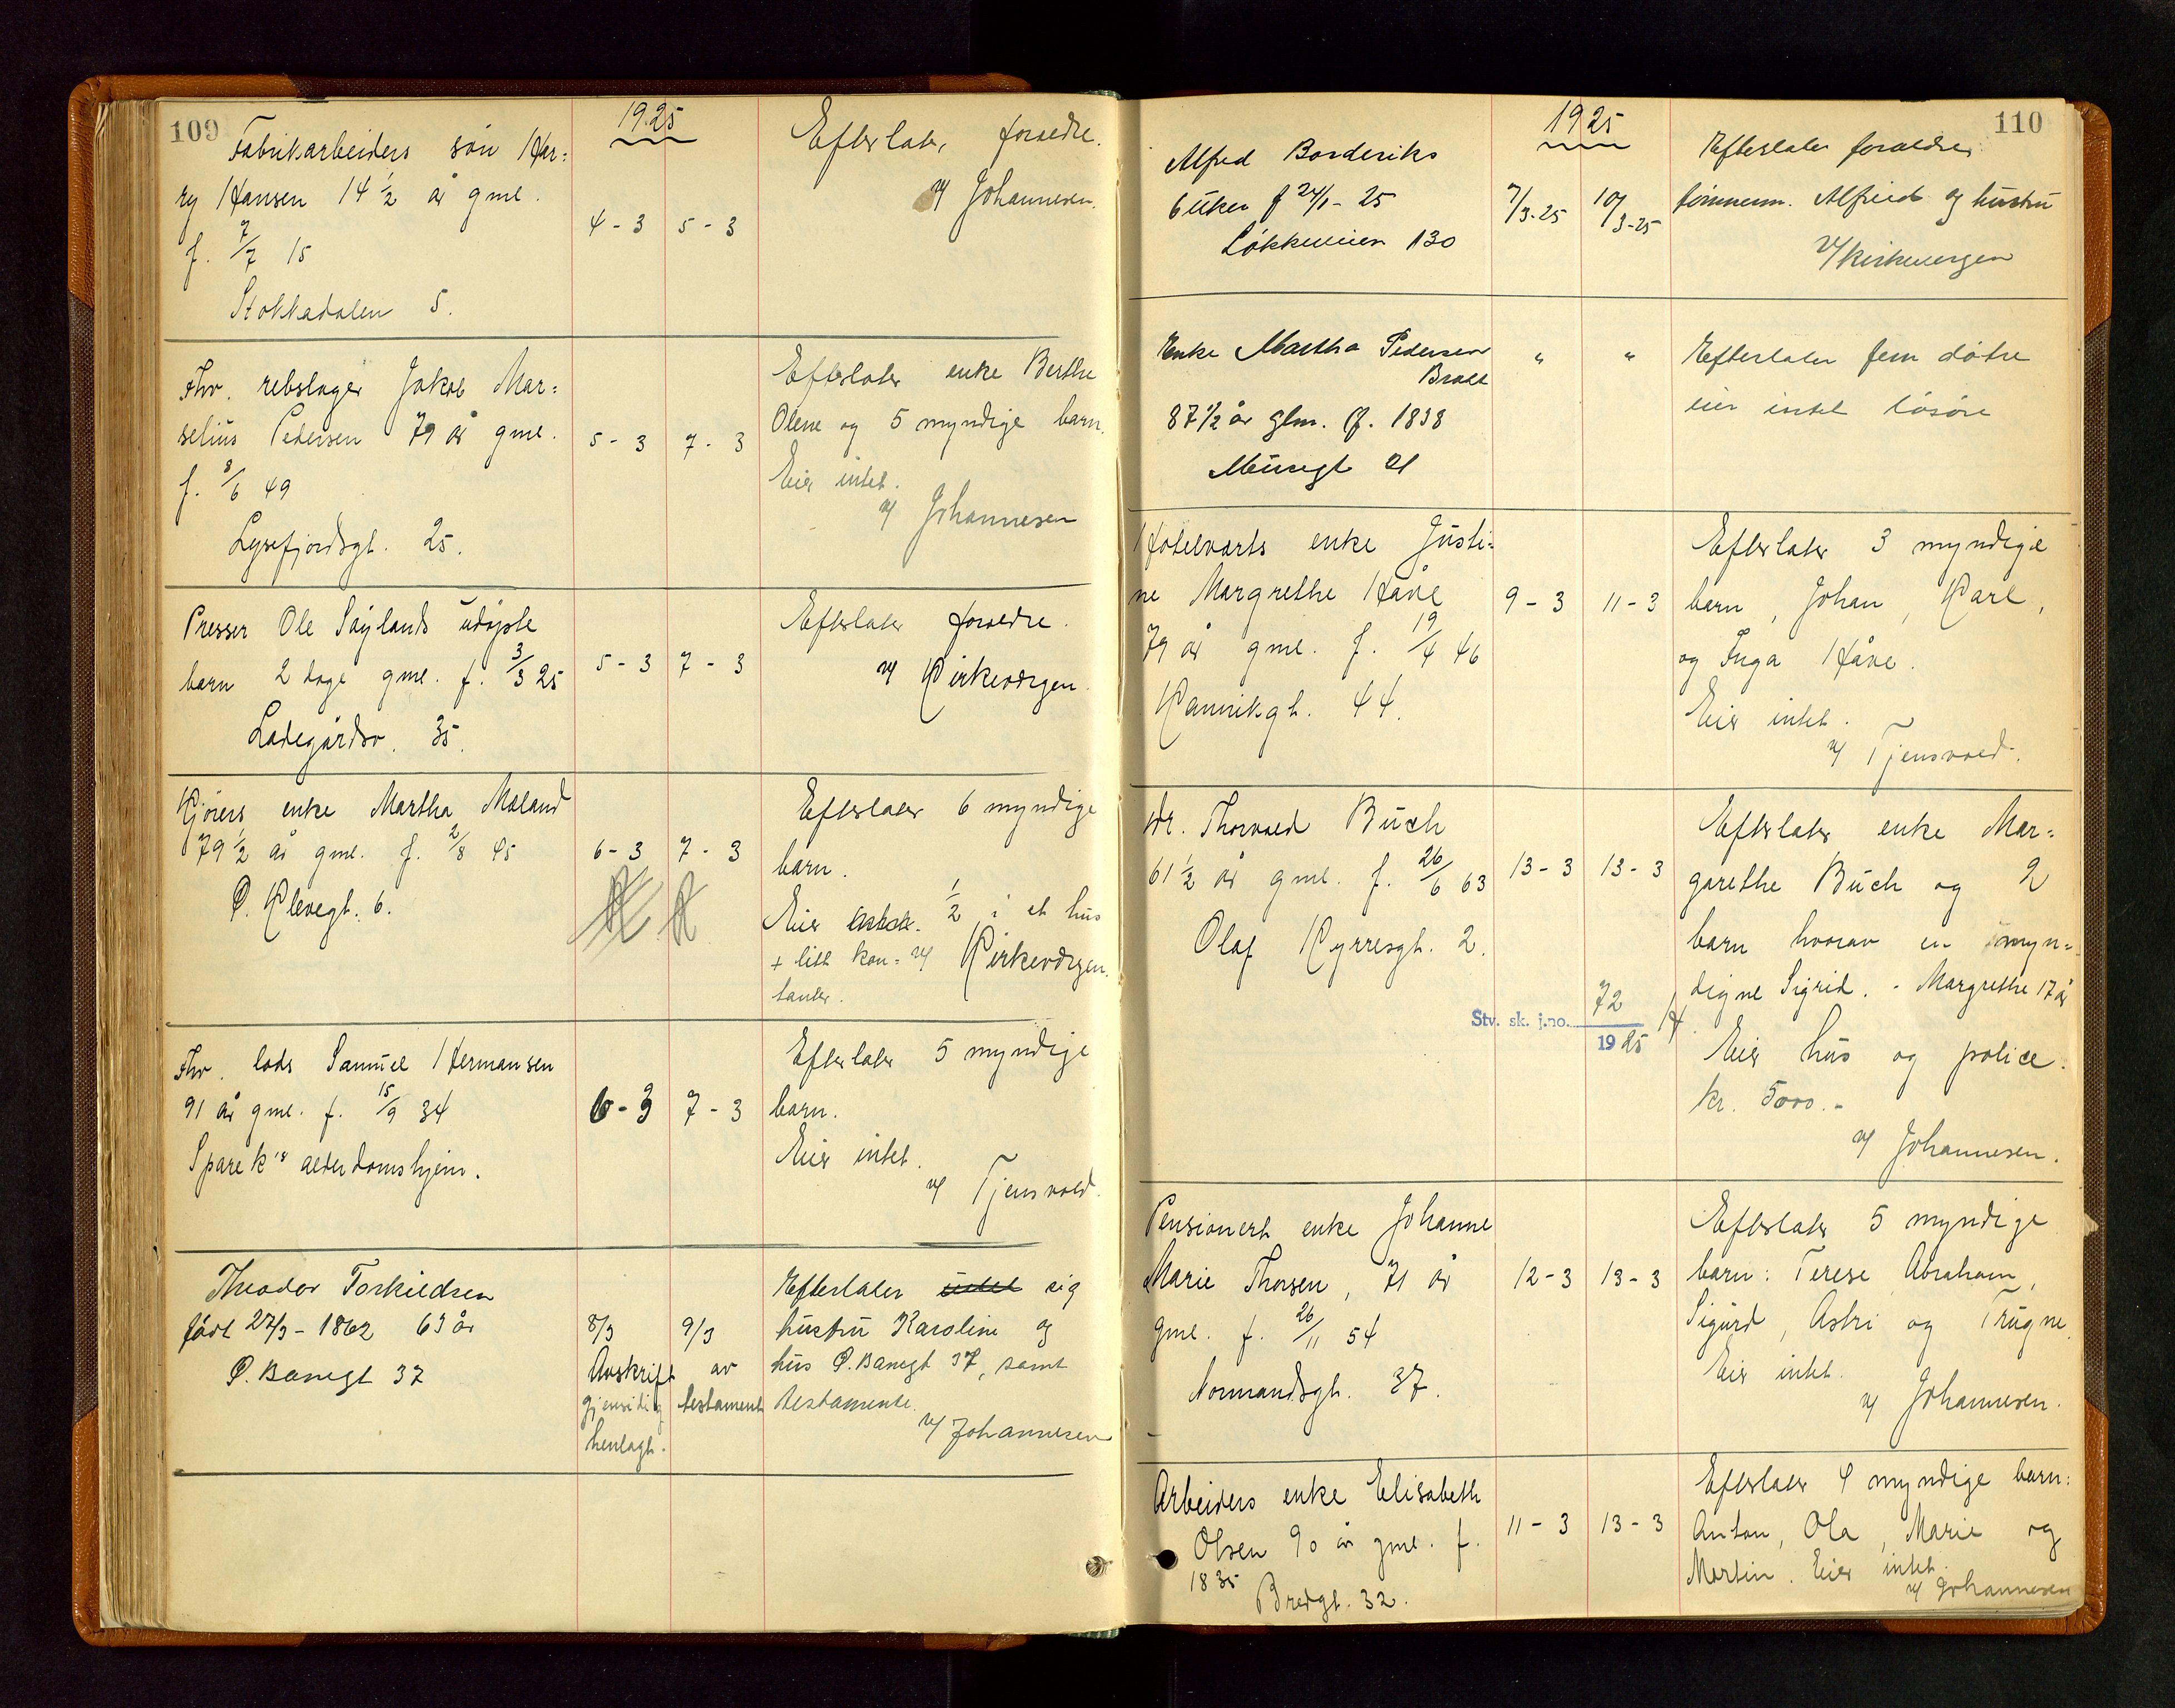 109
1925
Fabrikarbeiders søn Har=
ry Hansen 14 1/2 år gml.
f. 7/7 15
Stokkadalen 5.
4 - 3
5 - 3
Efterlater foreldre.
v/ Johannesen.
Fhv. rebslager Jakob Mar=
selius Pedersen 79 år gml.
f. 8/6 49
Lysefjordsgt. 25.
5 - 3
7 - 3
Efterlater enke Berthe
Olene og 5 myndige barn.
Eier intet.
v/ Johannesen
Presser Ole Søylands udøpte
barn 2 dage gml. f. 3/3 25
Ladegårdsv. 35.
5 - 3
7 - 3
Efterlater foreldre.
v/ Kirkevergen.
Kjørers enke Martha Maland
79 1/2 år gml. f. 2/8 45
P. Klevegt. 6.
6 - 3
7 - 3
Efterlater 6 myndige
barn.
Eier intet. 1/2 i et hus
+ litt kon= v/ Kirkevergen.
tanter.
Fhv. lods Samuel Hermansen
91 år gml. f. 15/9 34
Spare k's alderdomshjem.
6 - 3
7 - 3
Efterlater 5 myndige
barn.
Eier intet.
v/ Tjensvold.
Theodor Torkildsen
født 27/3 - 1862 63 år
P. Banegt 37
8/3
9/3
Avskrift av
gjensidig testament
henlagt.
Efterlater intet sig
hustru Karoline og
hus P. Banegt 37, samt
testamente.
v/ Johannesen
110
1925
Alfred Borderiks
6 uker f 24/1 - 25
Løkkeveien 130
7/3-25
10/3-25
Efterlater foreldre
Alfred og hustru
v/ Kirkevergen
Enke Martha Pedersen
87 1/2 år glm. f. 1838
Musegt 21
"
"
Efterlater fem døtre
eier intet løsøre
Hotelverts enke Justi=
ne Margrethe Håve
79 år gml. f. 19/4 46
Kannikgt. 44.
9 - 3
11 - 3
Efterlater 3 myndige
barn, Johan, Karl,
og Inga Håve.
Eier intet.
v/ Tjensvold.
Hr. Thorvald Buch
61 1/2 år gml. f. 26/6 63
Olaf Kyrresgt. 2.
13 - 3
13 - 3
Stv. sk. j.no. 72
1925
Efterlater enke Mar=
garethe Buch og 2
barn hvorav en umyn=
digne Sigrid. - Margrethe 17 år
Eier hus og police.
kr. 5000.-
v/ Johannesen.
Pensionert enke Johanne
Marie Thorsen, 71 år
gml. f. 26/11 54
Normandsgt. 37.
12 - 3
13 - 3
Efterlater 5 myndige
barn: Terese, Abraham,
Sigurd, Astri og Trugne.
Eier intet.
v/ Johannesen.
Arbeiders enke Elisabeth
Olsen 90 år gml. f.
1835
Bredgt. 32.
11 - 3
13 - 3
Efterlater 4 myndige barn:
Anton, Ola, Marie og
Martin. Eier intet.
v/ Johannesen